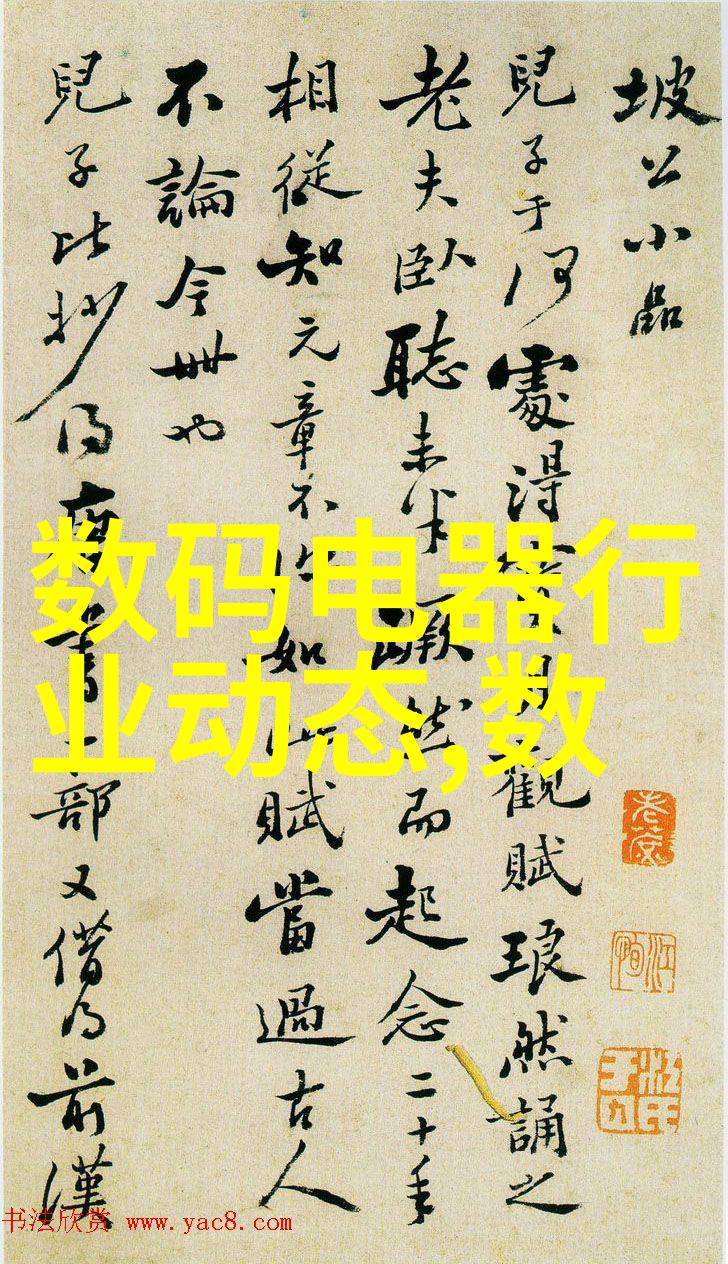 坡公小品
兒子于何處得月觀賦琅然誦之
老夫臥聽未半蹶然而起念二十年
相從知元章不如此賦當過古人
不論今世也
兒子比抄得唐書一部又借得前漢
数码电器行
业动态,数
书法欣赏 www.yac8.com